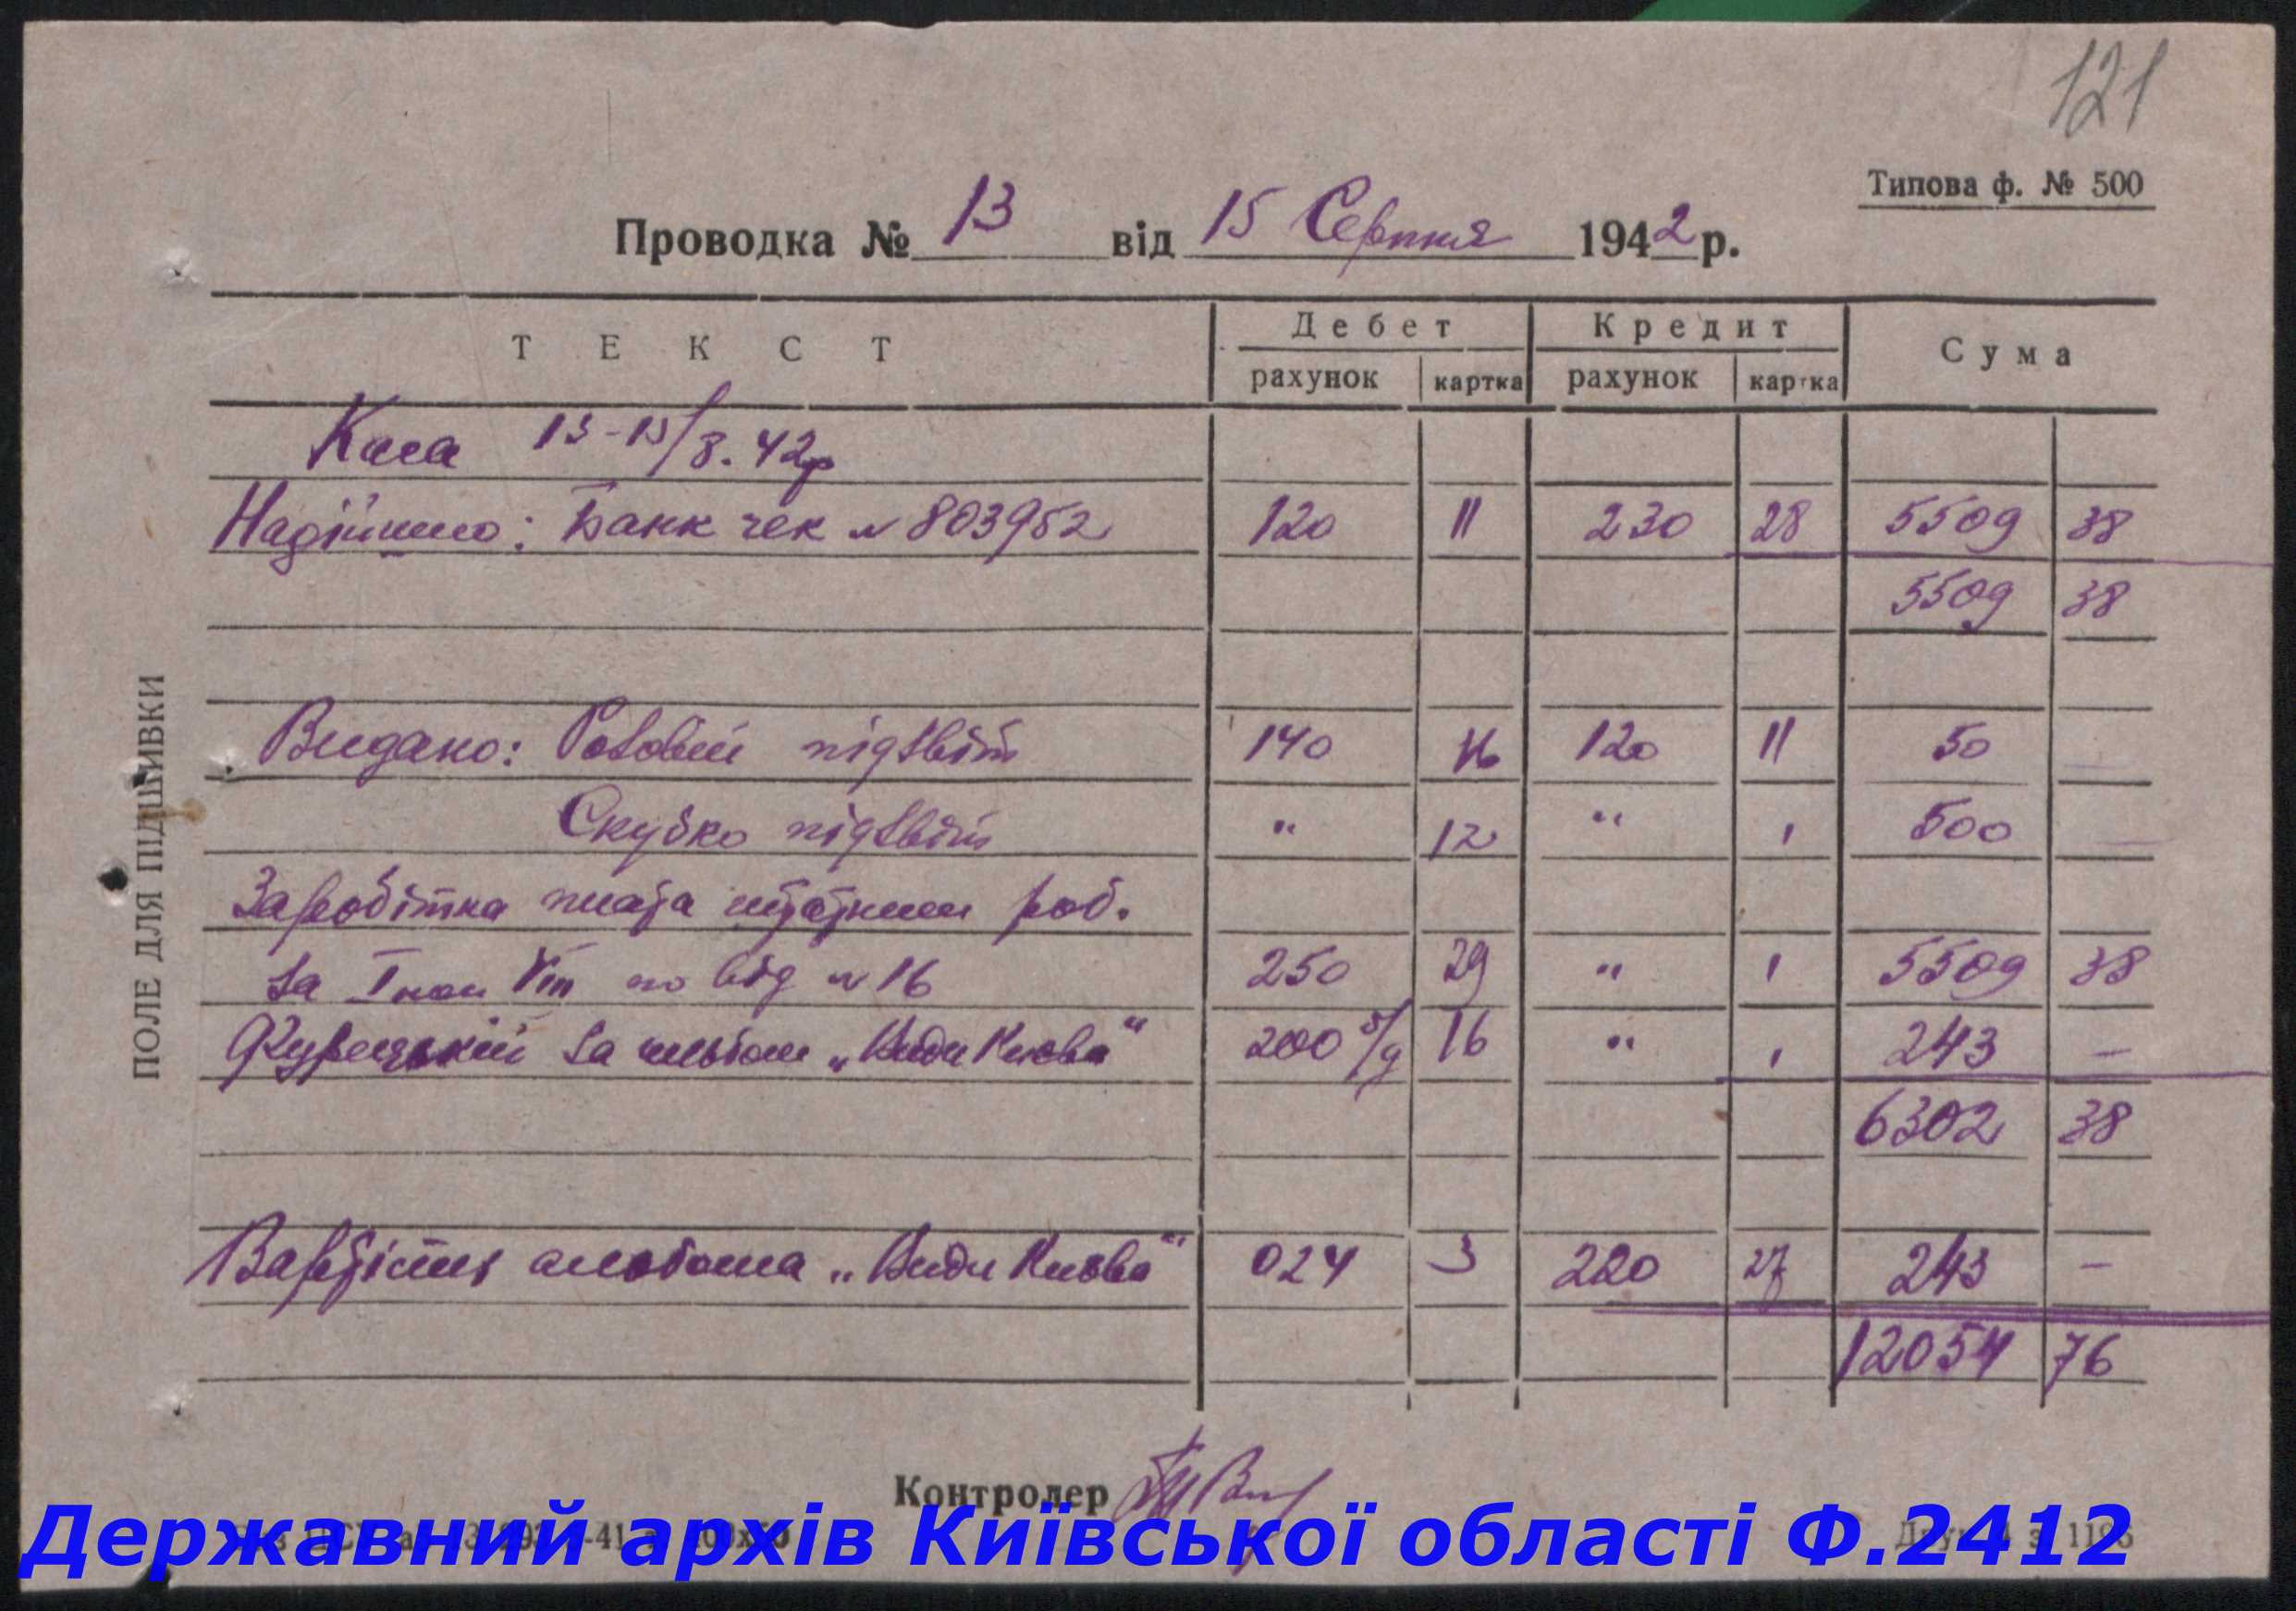 121
Типова ф. № 500
Проводка № 13 від 15 Серпня 1942 р.
ТЕКСТ Дебет Кредит Сума
рахунок картка рахунок картка
Каса 13-15/8.42р
Надійшло: Банк чек № 803952 120 11 230 28 5509 38
5509 38
Видано: підзвіт 140 120 11 50
Скубко підзвіт " 12 " ' 500
Заробітна плата штатним роб.
за I пол VIII по від № 16 250 29 " ' 5509 38
за альбом „Види Києва" 200 16 " ' 243 —
6302 38
Вартість альбома „Види Києва" 024 3 220 27 243 —
12054 76
ПОЛЕ ДЛЯ ПІДШИВКИ
Контролер
Державний архів Київської області Ф.2412